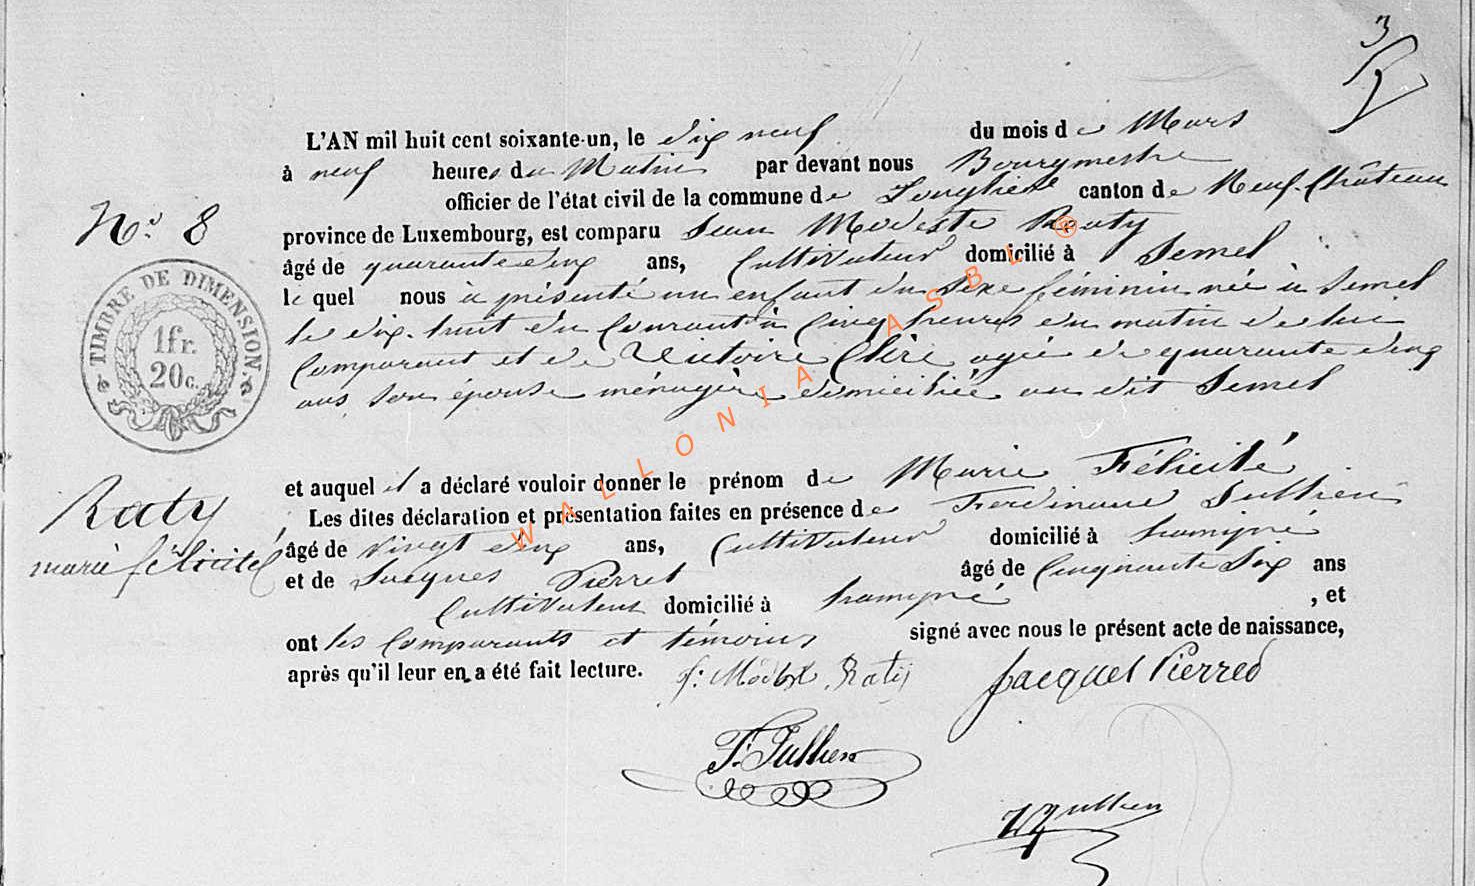 3
L'AN mil huit cent soixante-un, le dix neuf du mois de Mars
à neuf heures du Matin par devant nous Bourgmestre
officier de l'état civil de la commune de Longlier canton de Neuf-Château
N° 8
province de Luxembourg, est comparu Jean Modeste Raty
âgé de quarante cinq ans, Cultivateur domicilié à Semel
le quel nous à présenté un enfant du sexe féminin née à Semel
le dix-huit du Courant à Cinq heures du matin de lui
Comparant et de Victoire agée de quarante cinq
ans son épouse ménagère domiciliée au dit Semel
TIMBRE DE DIMENSION
1fr.
20c.
et auquel il a déclaré vouloir donner le prénom de Marie Félicité
Les dites déclaration et présentation faites en présence de Ferdinand Jullien
Raty
marie félicité
âgé de vingt cinq ans, Cultivateur domicilié à
et de Jacques Pierret âgé de Cinquante Six ans
Cultivateur domicilié à , et
ont les Comparants et témoins signé avec nous le présent acte de naissance,
après qu'il leur en a été fait lecture. J: Modest Raty Jacques Pierred
F. Jullien
Jullien
WALLONIA ASBL ®